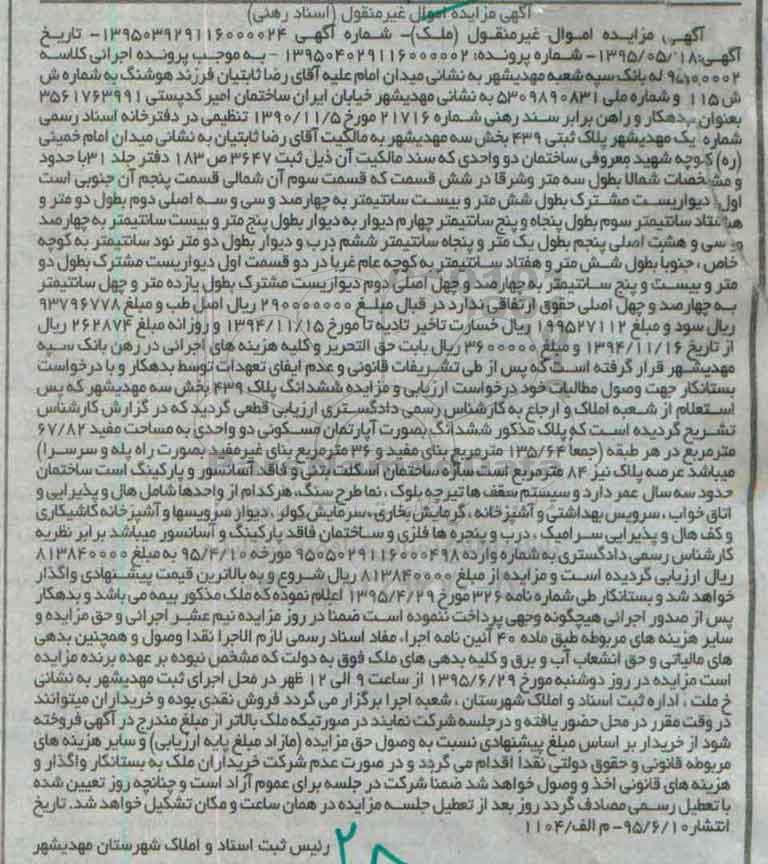 آگهی مزایده اموال غیرمنقول (اسناد رهنی)
آگهی مزایده اموال غیرمنقول (ملک)- شماره آگهی ۱۳۹۵۰۳۹۲۹۱۱۶۰۰۰۰۲۴- تاریخ
آگهی:۱۳۹۵/۰۵/۱۸- شماره پرونده: ۱۳۹۵۰۴۰۲۹۱۱۶۰۰۰۰۰۲ - به موجب پرونده اجرائی کلاسه
له بانک سپه شعبه مهدیشهر به نشانی میدان امام علیه آقای رضا ثابتیان فرزند هوشنگ به شماره ش
ش ۱۱۵ و شماره ملی ۵۳۰۹۸۹۰۸۳۱ به نشانی مهدیشهر خیابان ایران ساختمان امیر کدپستی ۳۵۶۱۷۶۳۹۹۱
بعنوان بدهکار و راهن برابر سند رهنی شماره ۲۱۷۱۶ مورخ ۱۳۹۰/۱۱/۵ تنظیمی در دفترخانه اسناد رسمی
شماره یک مهدیشهر پلاک ثبتی ۴۳۹ بخش سه مهدیشهر به مالکیت آقای رضا ثابتیان به نشانی میدان امام خمینی
(ره) کوچه شهید معروفی ساختمان دو واحدی که سند مالکیت آن ذیل ثبت ۳۶۴۷ ص ۱۸۳ دفتر جلد ۳۱ با حدود
و مشخصات شمالا بطول سه متر وشرقا در شش قسمت که قسمت سوم آن شمالی قسمت پنجم آن جنوبی است
اول دیواریست مشترک بطول شش متر و بیست سانتیمتر به چهارصد و سی و سه اصلی دوم بطول دو متر و
هشتاد سانتیمتر سوم بطول پنجاه و پنج سانتیمتر چهارم دیوار به دیوار بطول پنج متر و بیست سانتیمتر به چهارصد
و سی و هشت اصلی پنجم بطول یک متر و پنجاه سانتیمتر ششم درب و دیوار بطول دو متر نود سانتیمتر به کوچه
خاص ، جنوبا بطول شش متر و هفتاد سانتیمتر به کوچه عام غربا در دو قسمت اول دیواریست مشترک بطول دو
متر و بیست و پنج سانتیمتر به چهارصد و چهل اصلی دوم دیواریست مشترک بطول یازده متر و چهل سانتیمتر
به چهارصد و چهل اصلی حقوق ارتفاقی ندارد در قبال مبلغ ۲۹۰۰۰۰۰۰۰ ریال اصل طب و مبلغ ۹۳۷۹۶۷۷۸
ریال سود و مبلغ ۱۹۹۵۲۷۱۱۲ ریال خسارت تاخیر تادیه تا مورخ ۱۳۹۴/۱۱/۱۵ و روزانه مبلغ ۲۶۲۸۷۴ ریال
از تاریخ ۱۳۹۴/۱۱/۱۶ و مبلغ ۳۶۰۰۰۰۰ ریال بابت حق التحریر و کلیه هزینه های اجرائی در رهن بانک سپه
مهدیشهر قرار گرفته است که پس از طی تشریفات قانونی و عدم ایفای تعهدات توسط بدهکار و با درخواست
بستانکار جهت وصول مطالبات خود درخواست ارزیابی و مزایده ششدانگ پلاک ۴۳۹ بخش سه مهدیشهر که پس
استعلام از شعبه املاک و ارجاع به کارشناس رسمی دادگستری ارزیابی قطعی گردید که در گزارش کارشناس
تشریح گردیده است که پلاک مذکور ششدانگ بصورت آپارتمان مسکونی دو واحدی به مساحت مفید ۶۷/۸۲
مترمربع در هر طبقه (جمعا ۱۳۵/۶۴ مترمربع بنای مفید و ۳۶ مترمربع بنای غیرمفید بصورت راه پله و سرسرا)
میباشد عرصه پلاک نیز ۸۴ مترمربع است سازه ساختمان اسکلت بتنی و فاقد آسانسور و پارکینگ است ساختمان
حدود سه سال عمر دارد و سیستم سقف ها تیرچه بلوک ، نما طرح سنگ، هرکدام از واحدها شامل هال و پذیرایی و
اتاق خواب ، سرویس بهداشتی و آشپزخانه ، گرمایش بخاری ، سرمایش کولر ، دیوار سرویسها و آشپزخانه کاشیکاری
و کف هال و پذیرایی سرامیک ، درب و پنجره ها فلزی و ساختمان فاقد پارکینگ و آسانسور میباشد برابر نظریه
کارشناس رسمی دادگستری به شماره وارده ۹۵۰۵۰۲۹۱۱۶۰۰۰۴۹۸ مورخه ۹۵/۴/۱۰ به مبلغ ۸۱۳۸۴۰۰۰۰
ریال ارزیابی گردیده است و مزایده از مبلغ ۸۱۳۸۴۰۰۰۰ ریال شروع و به بالاترین قیمت پیشنهادی واگذار
خواهد شد و بستانکار طی شماره نامه ۳۲۶ مورخ ۱۳۹۵/۴/۲۹ اعلام نموده که ملک مذکور بیمه می باشد و بدهکار
پس از صدور اجرائی هیچگونه وجهی پرداخت ننموده است ضمنا در روز مزایده نیم عشر اجرائی و حق مزایده و
سایر هزینه های مربوطه طبق ماده ۴۰ آئین نامه اجراء مفاد اسناد رسمی لازم الاجرا نقدا وصول و همچنین بدهی
های مالیاتی و حق انشعاب آب و برق و کلیه بدهی های ملک فوق به دولت که مشخص نبوده بر عهده برنده مزایده
است مزایده در روز دوشنبه مورخ ۱۳۹۵/۶/۲۹ از ساعت ۹ الی ۱۲ ظهر در محل اجرای ثبت مهدیشهر به نشانی
خ ملت ، اداره ثبت اسناد و املاک شهرستان ، شعبه اجرا برگزار می گردد فروش نقدی بوده و خریداران میتوانند
در وقت مقرر در محل حضور یافته و در جلسه شرکت نمایند در صورتیکه ملک بالاتر از مبلغ مندرج در آگهی فروخته
شود از خریدار بر اساس مبلغ پیشنهادی نسبت به وصول حق مزایده (مازاد مبلغ پایه ارزیابی) و سایر هزینه های
مربوطه قانونی و حقوق دولتی نقدا اقدام می گردد و در صورت عدم شرکت خریداران ملک به بستانکار واگذار و
هزینه های قانونی اخذ و وصول خواهد شد ضمنا شرکت در جلسه برای عموم آزاد است و چنانچه روز تعیین شده
با تعطیل رسمی مصادف گردد روز بعد از تعطیل جلسه مزایده در همان ساعت و مکان تشکیل خواهد شد. تاریخ
انتشار ۹۵/۶/۱۰- م الف/۱۱۰۴
رئیس ثبت اسناد و املاک شهرستان مهدیشهر